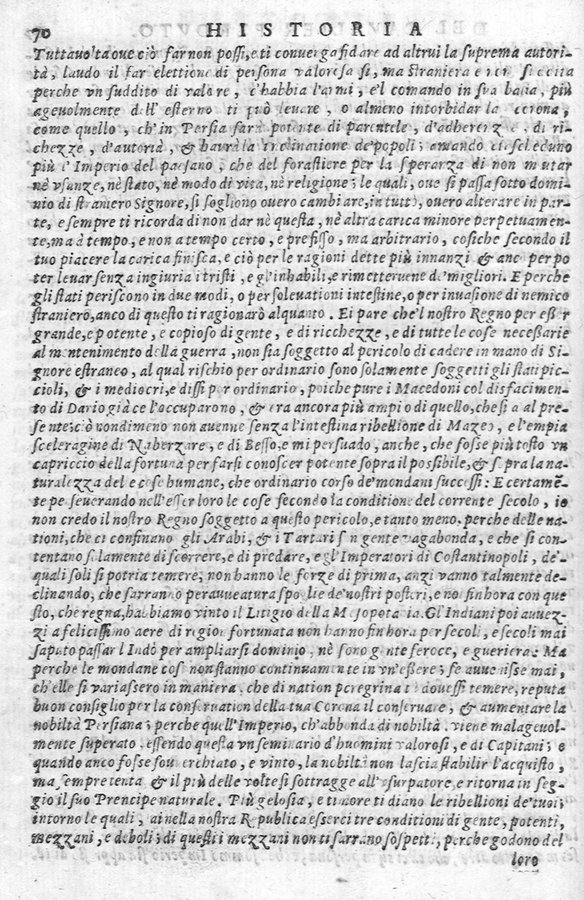 70 HISTORIA
Tuttavolta ove ciò far non possi, e ti converga fidare ad altrui la suprema autori-
tà, laudo il far elettione di persona valorosa sì, ma straniera e non
perche vn suddito di valore, c'habbia l'armi, e'l comando in sua balia, più
agevolmente dell' esterno ti può levare, o almeno intorbidar la corona,
come quello, ch'in Persia farà potente di parentele, d'adherenze, di ri-
chezze, d'autorià, & havrà la inclinatione de' popoli; amando
più l'Imperio del paesano, che del forastiere per la speranza di non mutar
nè vsanze, nè stato, nè modo di vita, nè religione; le quali, ove si passa sotto domi-
nio di straniero Signore, si sogliono overo cambiare, in tutto, overo alterare in par-
te, e sempre ti ricorda di non dar nè questa, nè altra carica minore perpetuamen-
te, ma à tempo, e non a tempo certo, e prefisso, ma arbitrario, cosiche secondo il
tuo piacere la carica finisca, e ciò per le ragioni dette più innanzi & anco per po
ter levar senza ingiuria i tristi, e gl'inhabili, e rimettervene de' migliori. E perche
gli stati periscono in due modi, o per solevationi intestine, o per invasione di nemico
straniero, anco di questo ti ragionarò alquanto. Ei pare che'l nostro Regno per esser
grande, e potente, e copioso di gente, e di ricchezze, e di tutte le cose necessarie
al mantenimento della guerra, non sia soggetto al pericolo di cadere in mano di Si-
gnore estraneo, al qual rischio per ordinario sono solamente soggetti gli stati pic-
cioli, & i mediocri, e dissi per ordinario, poiche pure i Macedoni col disfacimen-
to di Dario già ce l'occuparono, & era ancora più ampio di quello, che sia al pre-
sente; ciò nondimeno non avenne senza l'intestina ribellione di Mazeo, e l'empia
sceleragine di Naberzare, e di Besso, e mi persuado, anche, che fosse più tosto vn
capriccio della fortuna per farsi conoscer potente sopra il possibile, & sopra la na-
turalezza del e cose humane, che ordinario corso de' mondani successi: E certamẽ-
te perseverando nell'esser loro le cose secondo la conditione del corrente secolo, io
non credo il nostro Regno soggetto a questo pericolo, e tanto meno, perche delle na-
tioni, che ci confinano gli Arabi, & i Tartari son gente vagabonda, e che si con-
tentano solamente di scorrere, e di predare, e gl'Imperatori di Costantinopoli, de'
quali soli si potria temere; non hanno le forze di prima, anzi vanno talmente de-
clinando, che sarranno per avveatura spoglie de' nostri posteri, e no finhora con que
sto, che regna, habbiamo vinto il Litigio della Mesopotamia. Gl'Indiani poi avvez-
zi a felicissimo aere di region fortunata non hanno finhora per secoli, e secoli mai
saputo passar l'Indo per ampliarsi dominio, nè sono gente feroce, e gueriera: Ma
perche le mondane cose non stanno continuamente in vn'essere; se avvenisse mai,
ch'elle si variassero in maniera, che di nation peregrina tu dovessi temere, reputa
buon consiglio per la conservation della tua Corona il conservare, & aumentare la
nobiltà Persiana; perche quell'Imperio, ch'abbonda di nobiltà, viene malagevol-
mente superato, essendo questa vn seminario d'huomini valorosi, e di Capitani; e
quando anco fosse soverchiato, e vinto, la nobiltà non lascia stabilir l'acquisto,
ma sempre tenta & il più delle volte si sottragge all'vsurpatore, e ritorna in seg-
gio il suo Prencipe naturale. Più gelosia, e timore ti diano le ribellioni de' tuoi;
intorno le quali, ai nella nostra Republica esserci tre conditioni di gente, potenti,
mezzani, e deboli; di questi i mezzani non ti sarrano sospetti, perche godono del
loro